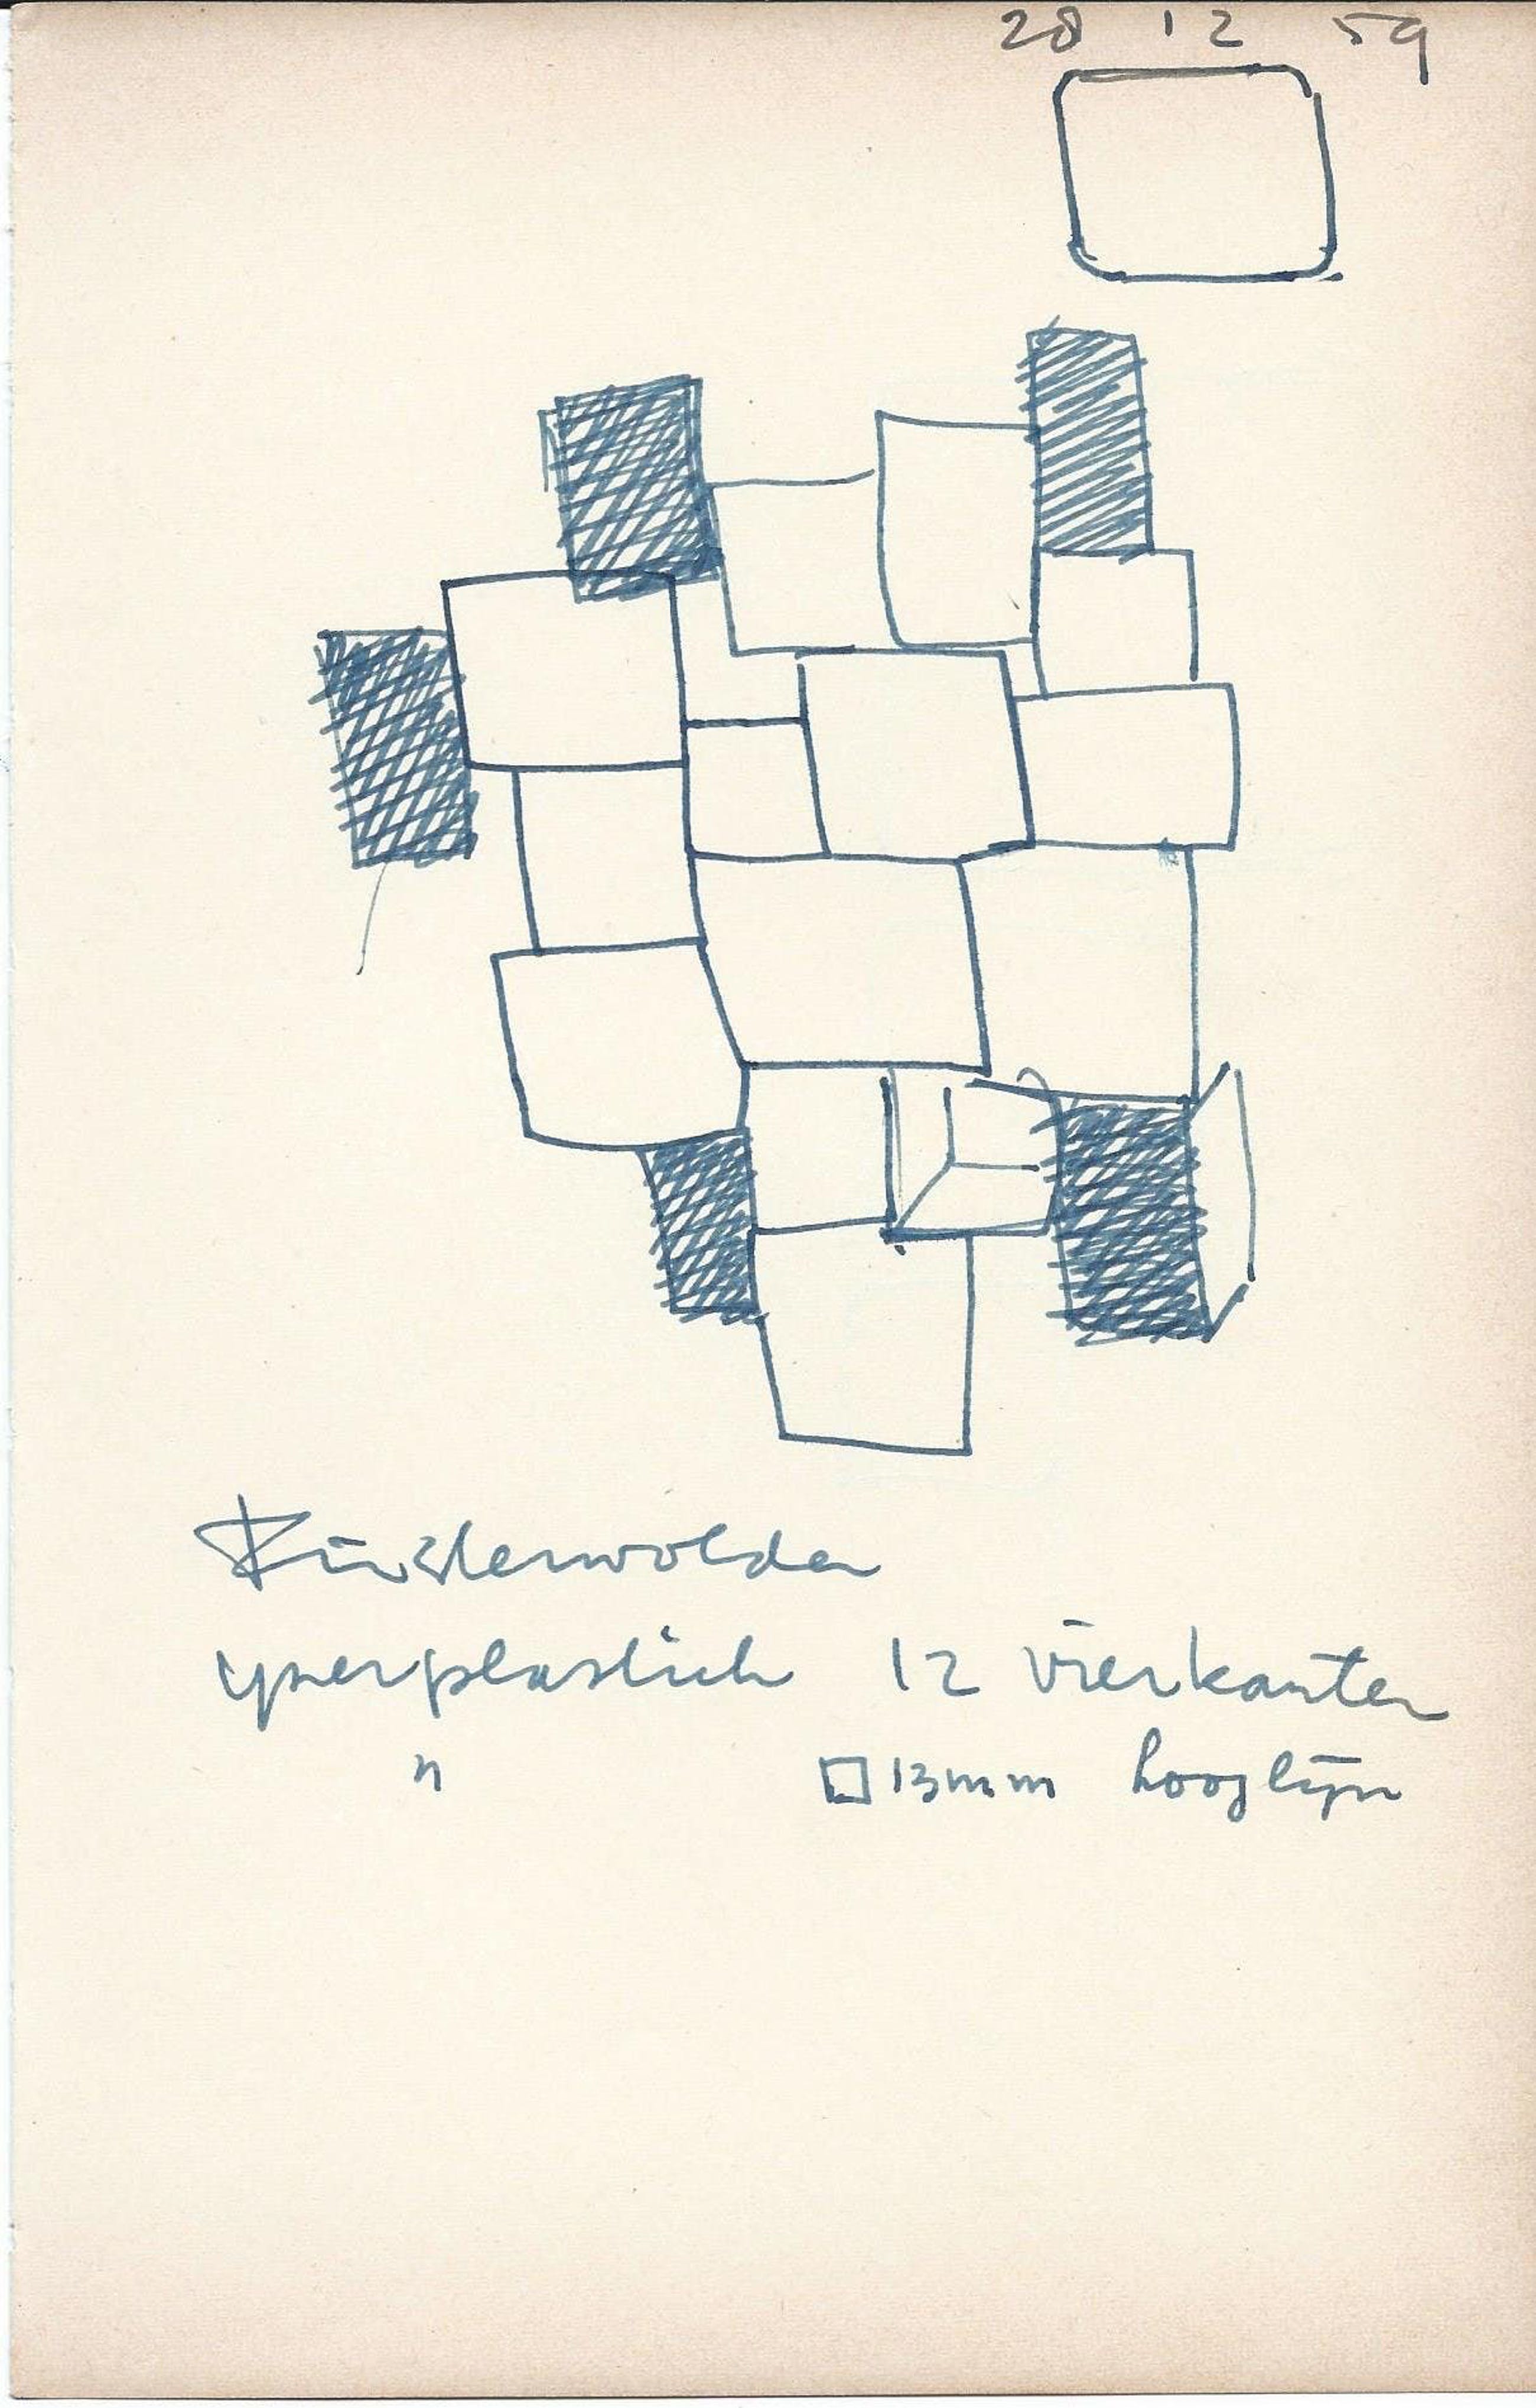 28 12 59
Finsterwolde
yserplastiek 12 vierkanten
" 13mm hooglyn